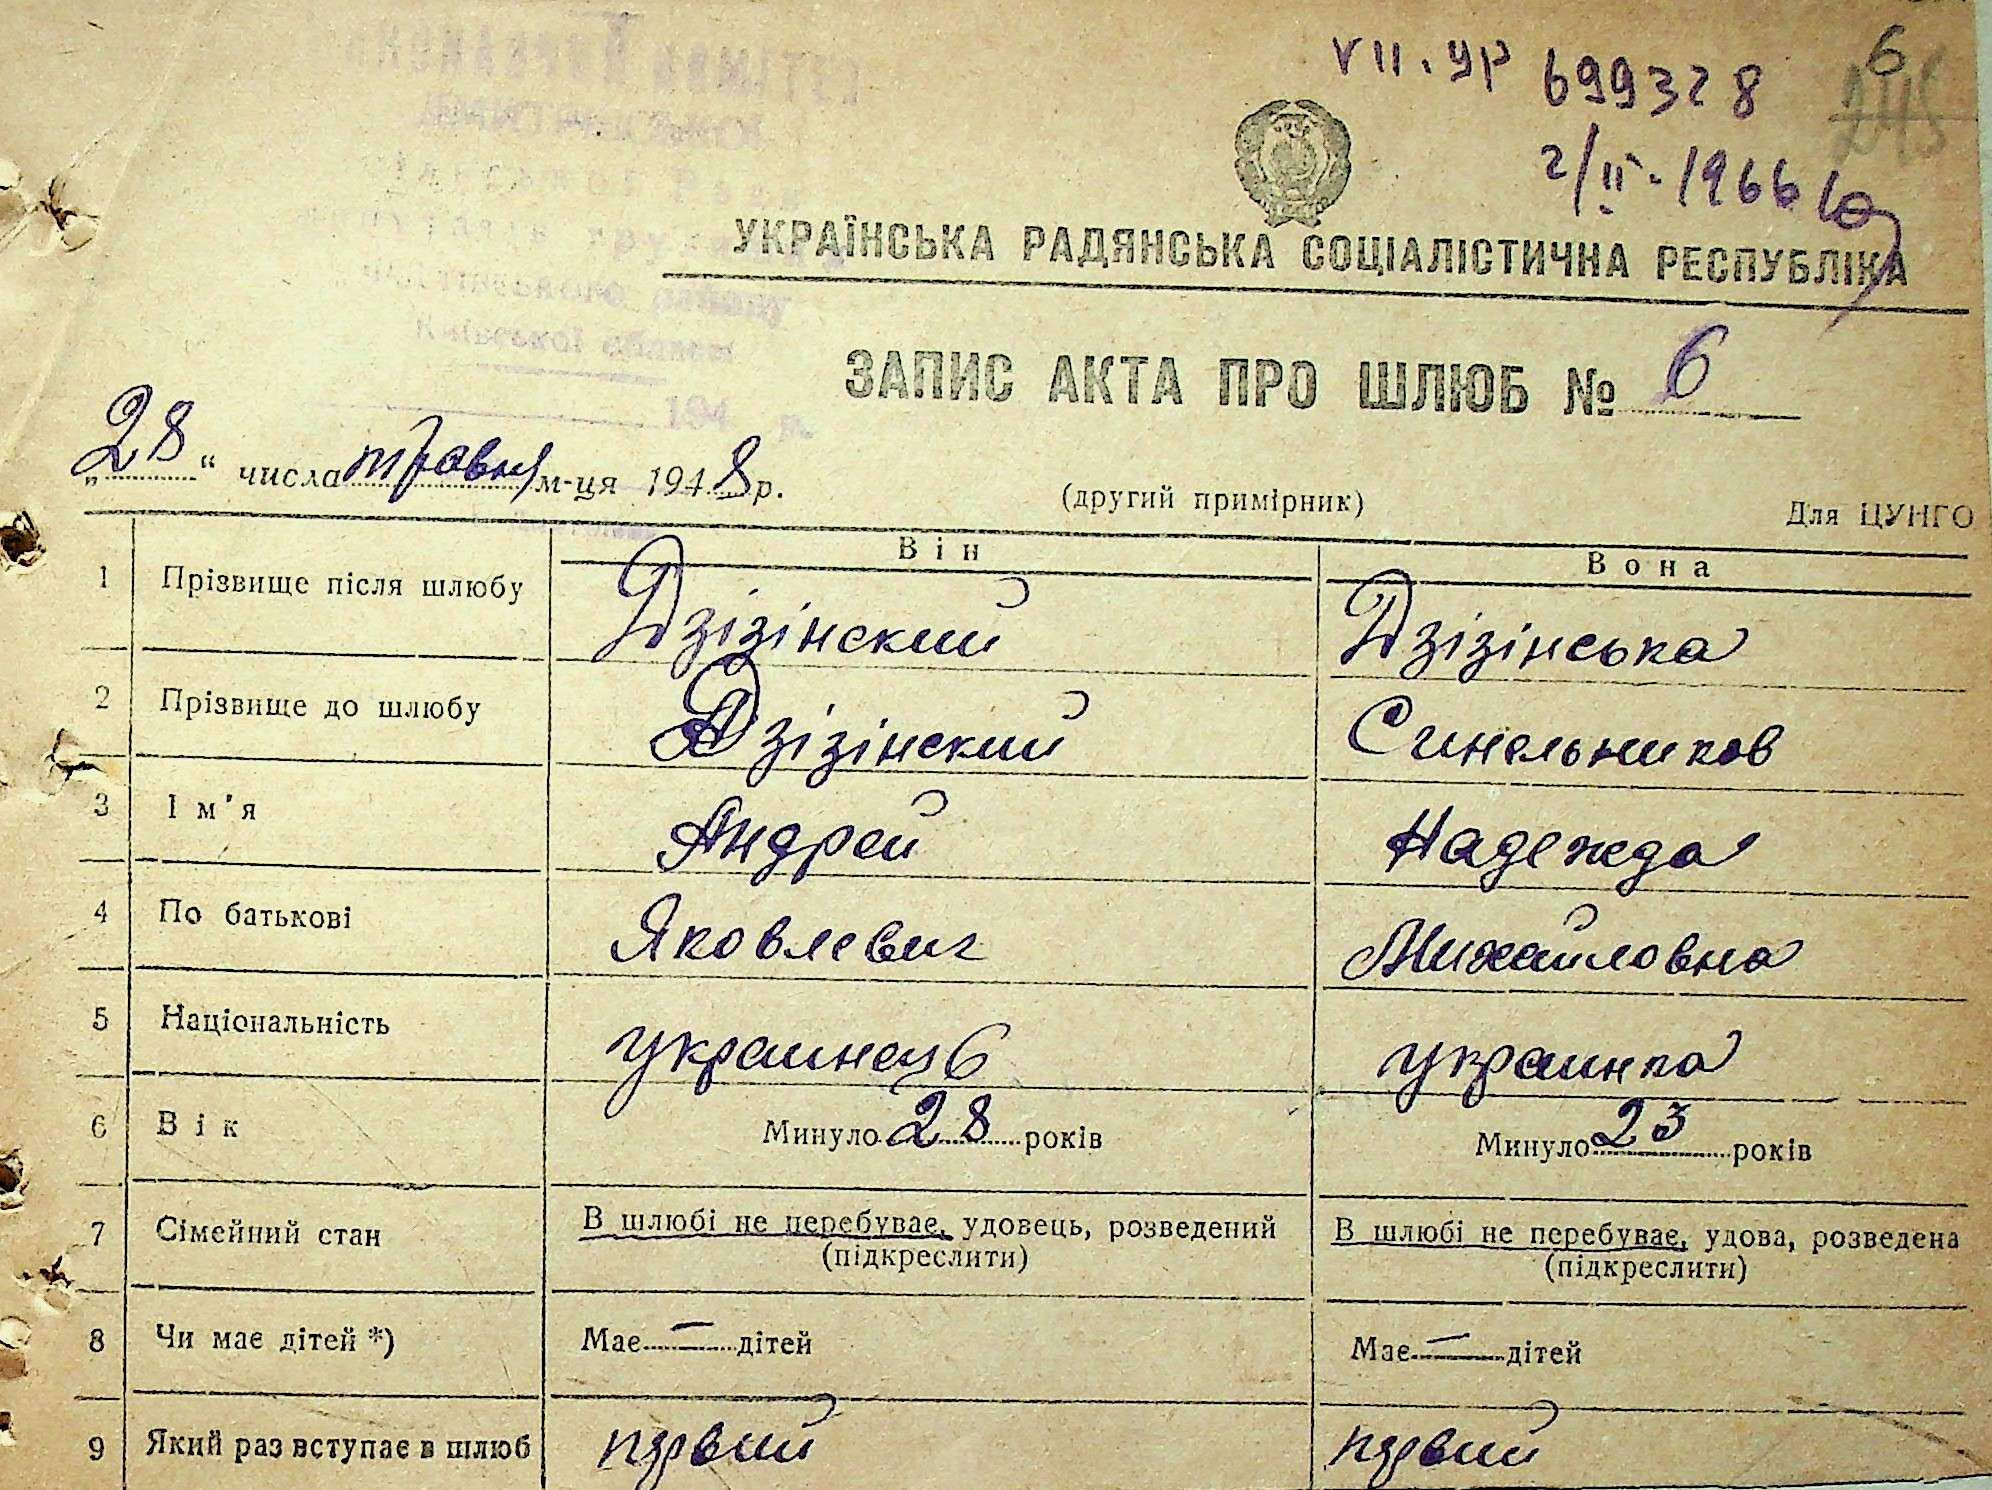 VII. УР 699328
6
245
2/II - 1966
УКРАЇНСЬКА РАДЯНСЬКА СОЦІАЛІСТИЧНА РЕСПУБЛІКА
ЗАПИС АКТА ПРО ШЛЮБ № 6
Київської області
194 р.
„28“ числа травня м-ця 1948 р.
(другий примірник)
Для ЦУНГО
Він Вона
1 Прізвище після шлюбу Дзізінский Дзізінська
2 Прізвище до шлюбу Дзізінский Синельников
3 Ім'я Андрей Надежда
4 По батькові Яковлевич Михайловна
5 Національність украинець украинка
6 Вік Минуло 28 років Минуло 23 років
7 Сімейний стан В шлюбі не перебуває, удовець, розведений В шлюбі не перебуває, удова, розведена
(підкреслити) (підкреслити)
8 Чи має дітей *) Має — дітей Має — дітей
9 Який раз вступає в шлюб первий первий